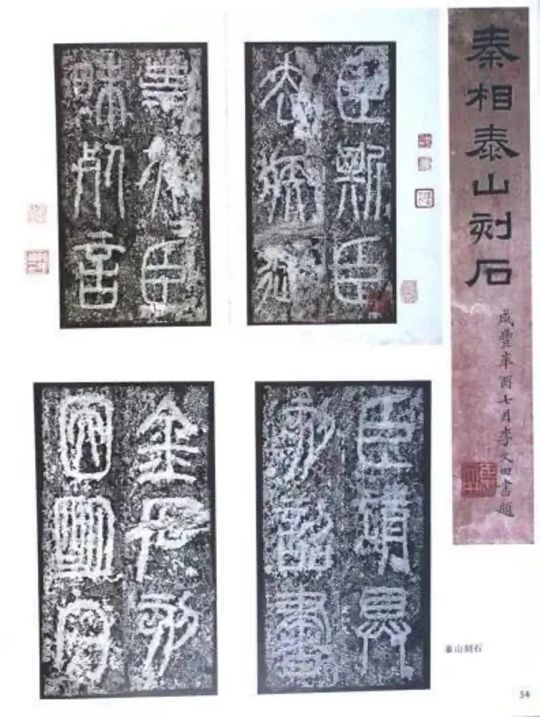 秦相泰山刻石
咸豐辛酉七月李文田書題
臣斯臣
去疾御
史夫臣
昧死言
臣請具
刻詔書
金石刻
因明白
泰山刻石
34